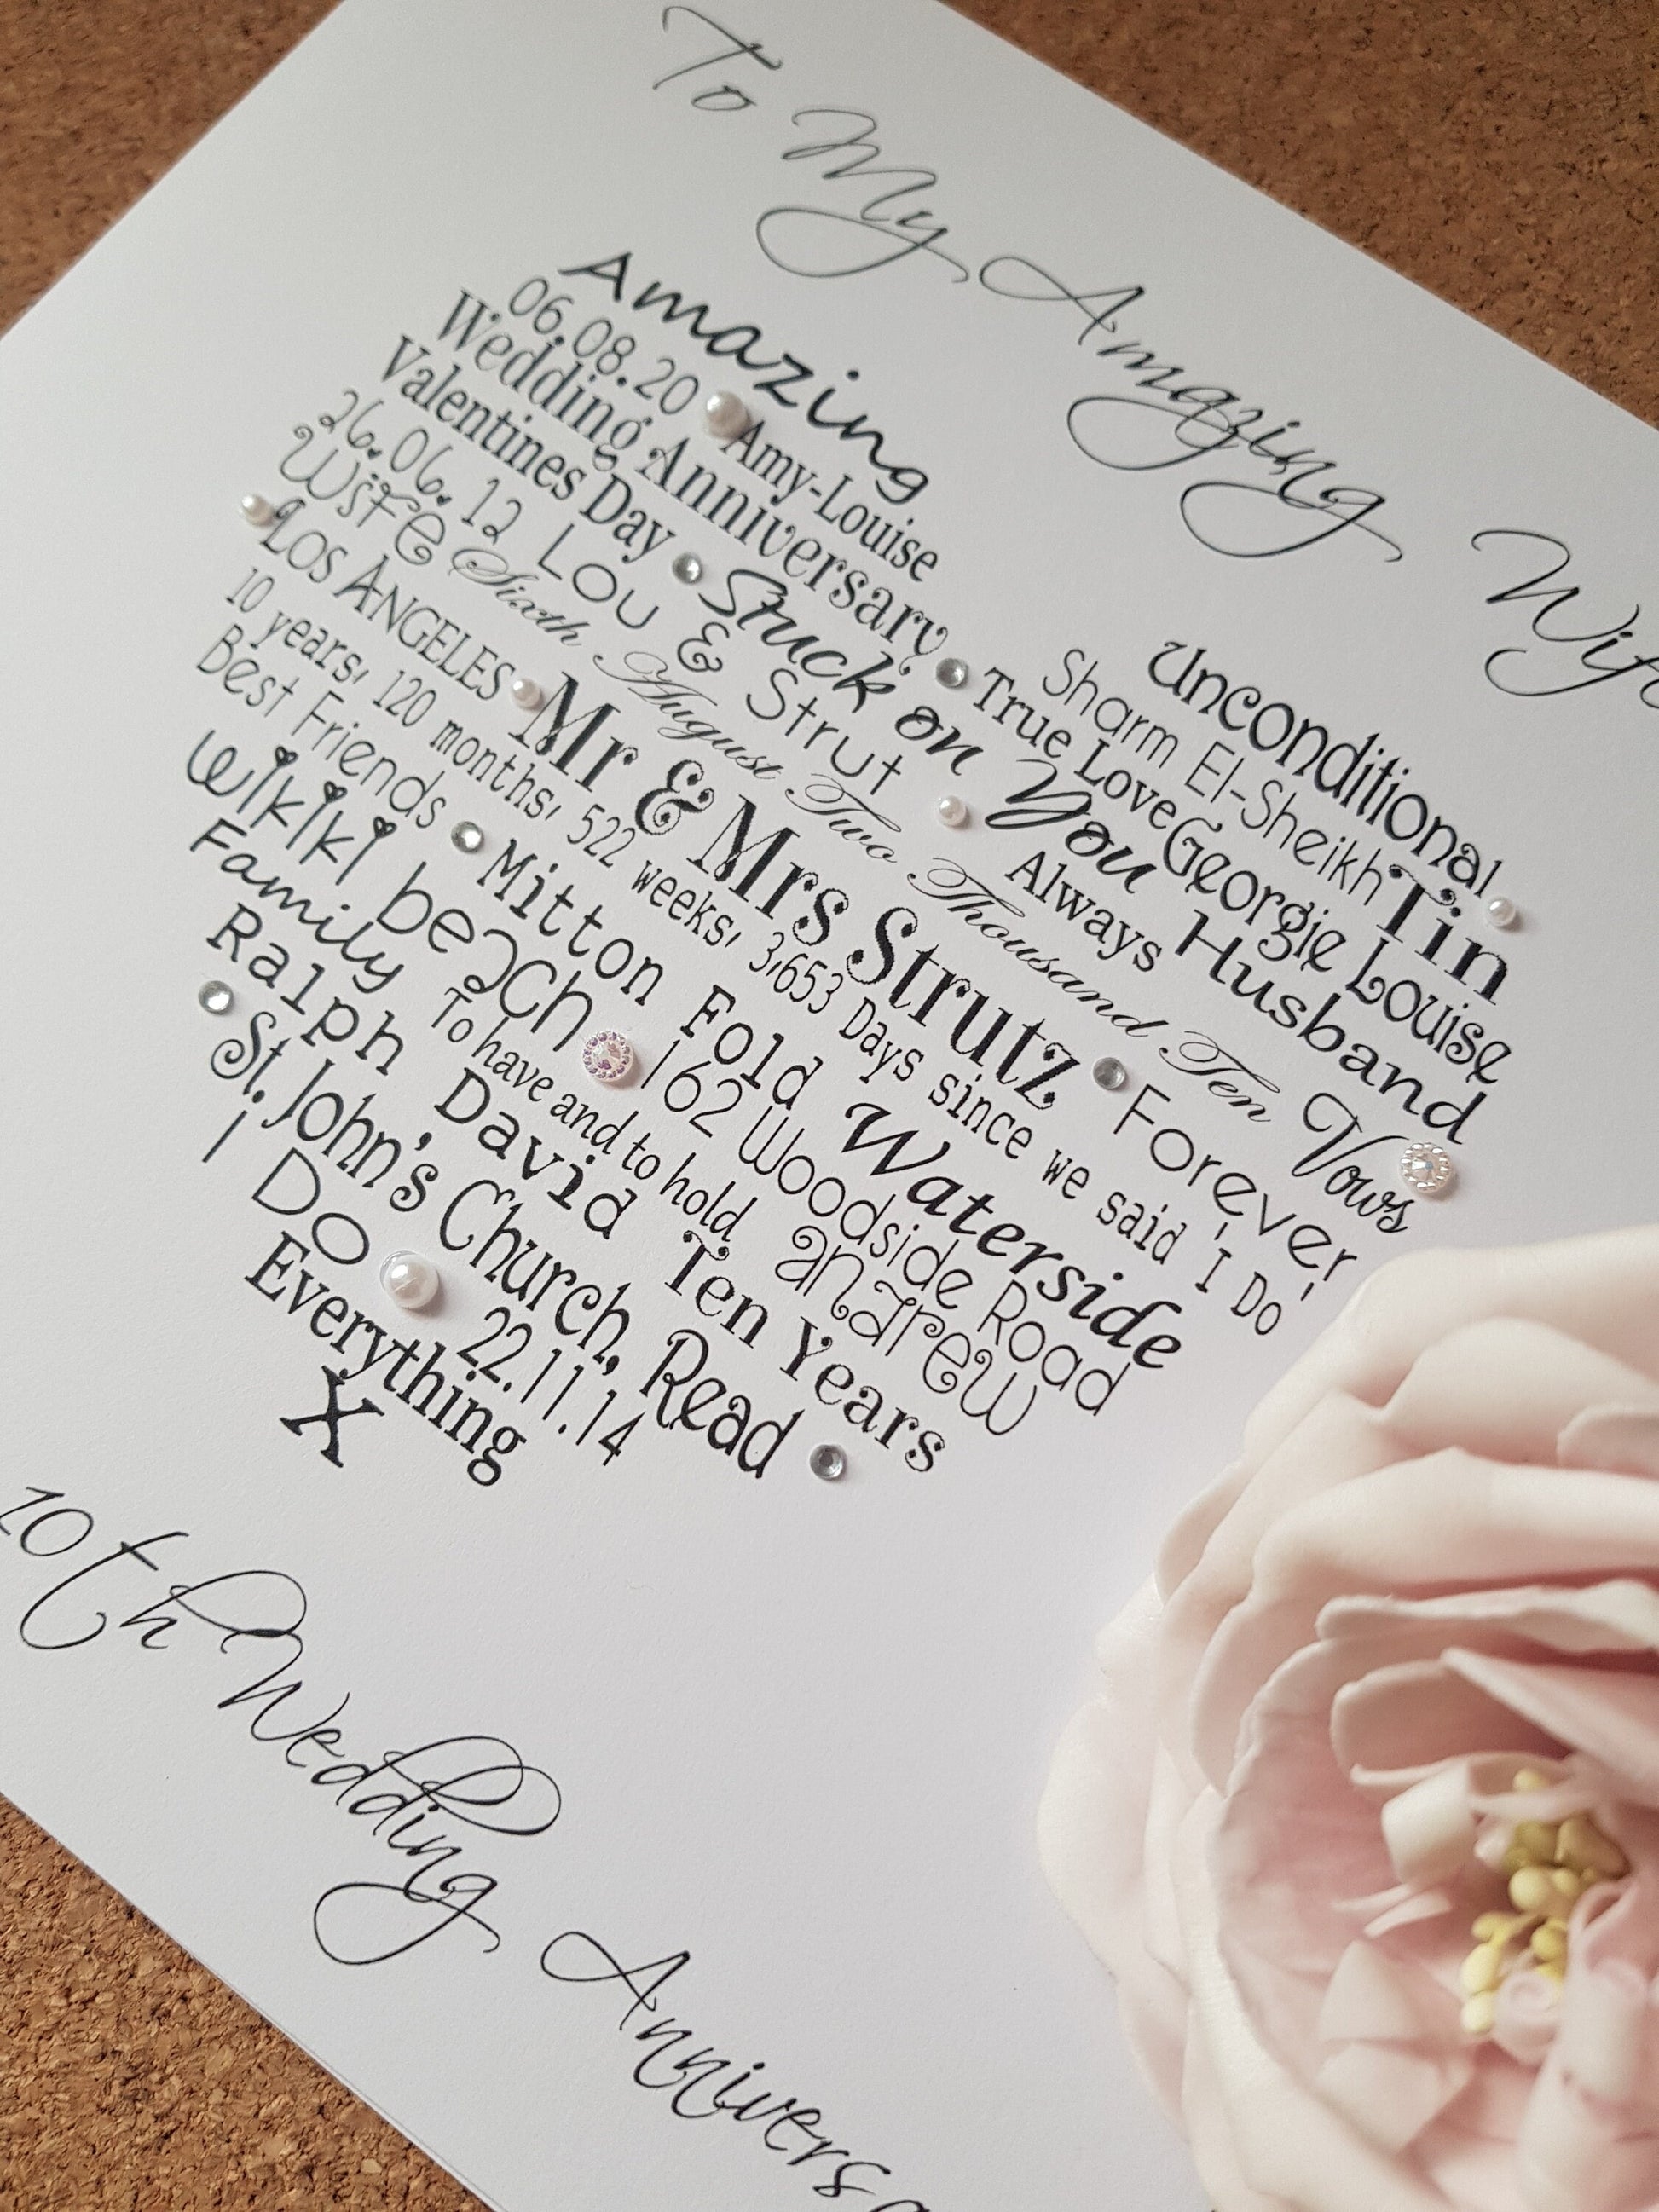 To My Amazing Wife
Amazing Unconditional
06.08.20 Amy-Louise Sharm El-Sheikh Tin
Wedding Anniversary True Love Georgie Louise
Valentines Day Stuck on You
26.06.12 Lou & Strut Always Husband
Wife Sixth August Two Thousand Ten Vows
Los Angeles Mr & Mrs Strutz Forever
10 years, 120 months, 522 weeks, 3,653 Days since we said 'I Do'
Best Friends Mitton Fold Waterside
Wikiki beach 162 Woodside Road
Family To have and to hold andrew
Ralph David Ten Years
St. John's Church, Read
I Do 22.11.14
Everything
X
10th Wedding Anniversa